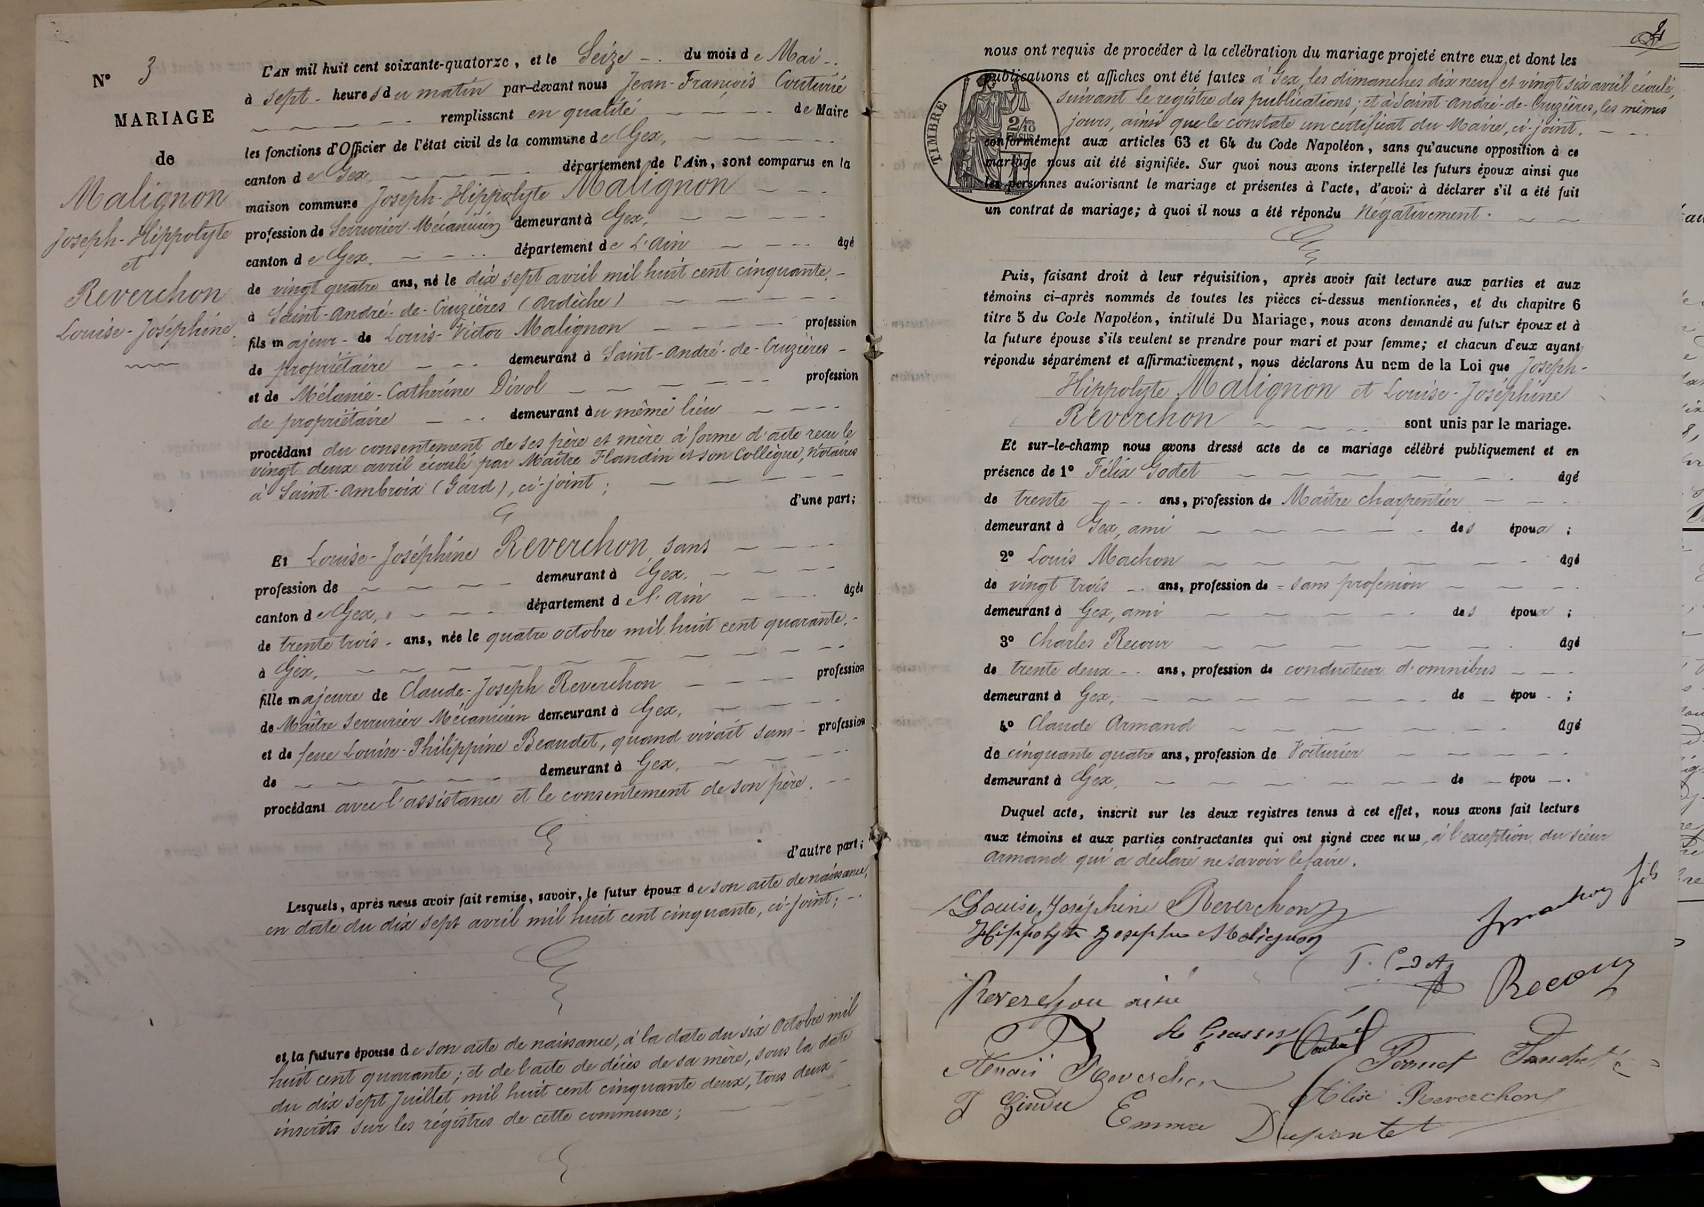 N° 3
MARIAGE
de
Malignon
Joseph-Hippolyte
et
Reverchon
Louise-Joséphine.
L'AN mil huit cent soixante-quatorze, et le Seize du mois de Mai
à sept heures du matin par-devant nous Jean-François Couturié
remplissant en qualité de Maire
les fonctions d'Officier de l'état civil de la commune de Gex,
canton de Gex, département de l'Ain, sont comparus en la
maison commune Joseph-Hippolyte Malignon
profession de Serrurier-Mécanicien demeurant à Gex,
canton de Gex, département de L'Ain âgé
de vingt quatre ans, né le dix sept avril mil huit cent cinquante,
à Saint-André-de-Cruzières (Ardèche)
fils majeur de Louis-Victor Malignon profession
de propriétaire demeurant à Saint-André-de-Cruzières
et de Mélanie-Catherine Divol profession
de propriétaire demeurant au même lieu
procédant du consentement de ses père et mère à forme d'acte reçu le
vingt deux avril écoulé par Maître Flandin et son Collègue, Notaires
à Saint-Ambroix (Gard), ci-joint;
d'une part;
Et Louise-Joséphine Reverchon, sans
profession de demeurant à Gex,
canton de Gex, département de l'Ain âgée
de trente trois ans, née le quatre octobre mil huit cent quarante,
à Gex,
fille majeure de Claude-Joseph Reverchon profession
de Maître Serrurier Mécanicien demeurant à Gex,
et de feue Louise-Philippine Beaudet, quand vivait sans profession
de demeurant à Gex,
procédant avec l'assistance et le consentement de son père.
d'autre part;
Lesquels, après nous avoir fait remise, savoir, le futur époux de son acte de naissance,
en date du dix sept avril mil huit cent cinquante, ci-joint;
et la future épouse de son acte de naissance, à la date du six Octobre mil
huit cent quarante; et de l'acte de décès de sa mère, sous la date
du dix sept Juillet mil huit cent cinquante deux, tous deux
inscrits sur les registres de cette commune;
nous ont requis de procéder à la célébration du mariage projeté entre eux, et dont les
publications et affiches ont été faites à Gex, les dimanches dix neuf et vingt six avril écoulé,
suivant le registre des publications; et à Saint-André-de-Cruzières, les mêmes
jours, ainsi que le constate un certificat du Maire, ci-joint.
TIMBRE
conformément aux articles 63 et 64 du Code Napoléon, sans qu'aucune opposition à ce
mariage nous ait été signifiée. Sur quoi nous avons interpellé les futurs époux ainsi que
les personnes autorisant le mariage et présentes à l'acte, d'avoir à déclarer s'il a été fait
un contrat de mariage; à quoi il nous a été répondu Négativement.
Puis, faisant droit à leur réquisition, après avoir fait lecture aux parties et aux
témoins ci-après nommés de toutes les pièces ci-dessus mentionnées, et du chapitre 6
titre 5 du Code Napoléon, intitulé Du Mariage, nous avons demandé au futur époux et à
la future épouse s'ils veulent se prendre pour mari et pour femme; et chacun d'eux ayant
répondu séparément et affirmativement, nous déclarons Au nom de la Loi que Joseph-
Hippolyte Malignon et Louise-Joséphine
Reverchon sont unis par le mariage.
Et sur-le-champ nous avons dressé acte de ce mariage célébré publiquement et en
présence de 1° Félix Godet âgé
de trente ans, profession de Maître charpentier
demeurant à Gex, ami des époux;
2° Louis Machon âgé
de vingt trois ans, profession de sans profession
demeurant à Gex, ami des époux;
3° Charles Recour âgé
de trente deux ans, profession de conducteur d'omnibus
demeurant à Gex, de épou;
4° Claude Armand âgé
de cinquante quatre ans, profession de Voiturier
demeurant à Gex, de épou.
Duquel acte, inscrit sur les deux registres tenus à cet effet, nous avons fait lecture
aux témoins et aux parties contractantes qui ont signé avec nous, à l'exception du sieur
Armand qui a déclaré ne savoir le faire.
Louise, Joséphine Reverchon
Hippolyte Joseph Malignon
fils
Reverchon aîné
Recour
Reverchon
Pernet
Elise Reverchon
Emma Dupontet